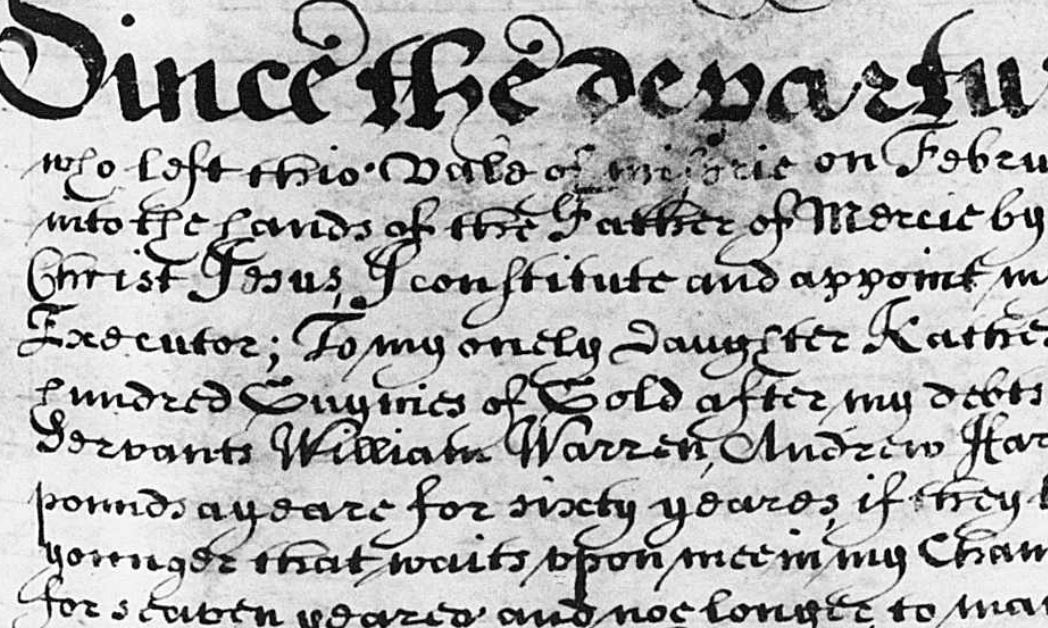 Since the departu
who left this Vale of miserie on Febru
into the hands of the Father of Mercie by
Christ Jesus, I constitute and appoint m
Executor; To my onely Daughter Kather
hundred Guynies of Gold after my debts
Servants William Warren, Andrew Har
pounds a yeare for sixty yeares, if they l
younger that waits vpon mee in my Cham
for seaven yeares and noe longer, to ma